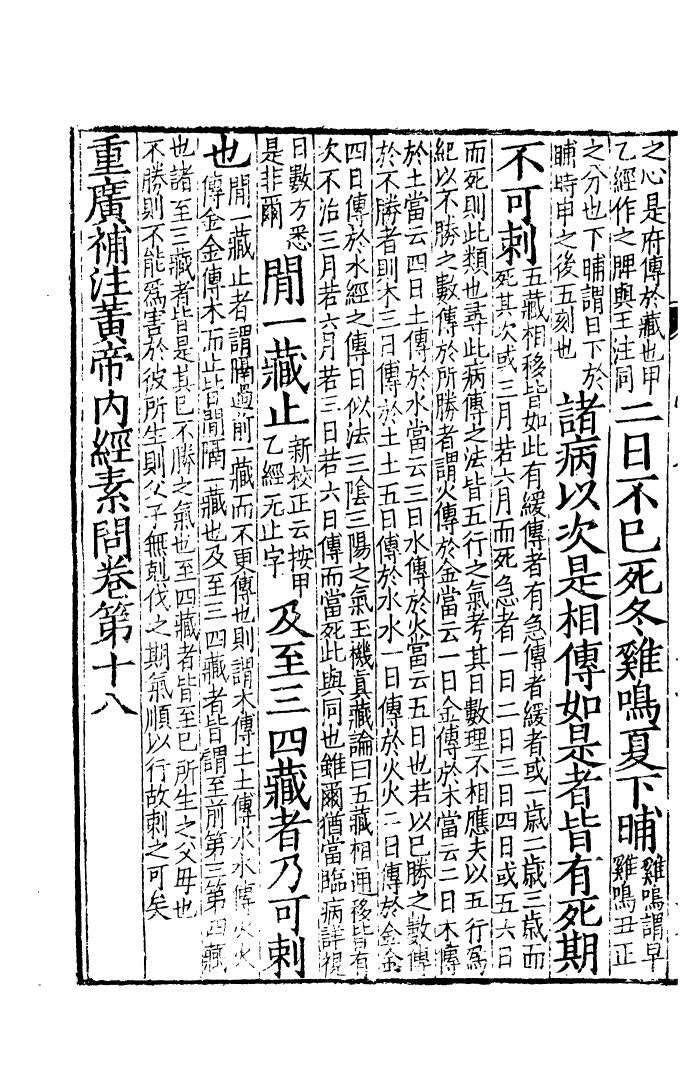 之心是府傳於藏也甲
乙經作之脾與王注同
二日不已死冬雞鳴夏下晡
雞鳴謂早
雞鳴丑正
之分也下晡謂日下於
晡時申之後五刻也
諸病以次是相傳如是者皆有死期
不可刺
五藏相移皆如此有緩傳者有急傳者緩者或一歲二歲三歲而
死其次或三月若六月而死急者一日二日三日四日或五六日
而死則此類也尋此病傳之法皆五行之氣考其日數理不相應夫以五行爲
紀以不勝之數傳於所勝者謂火傳於金當云一日金傳於木當云二日木傳
於土當云四日土傳於水當云三日水傳於火當云五日也若以已勝之數傳
於不勝者則木三日傳於土土五日傳於水水一日傳於火火二日傳於金金
四日傳於木經之傳日似法三陰三陽之氣王機真藏論曰五藏相通移皆有
次不治三月若六月若三日若六日傳而當死此與同也雖爾猶當臨病詳視
日數方悉
是非爾
閒一藏止
新校正云按甲
乙經無止字
及至三四藏者乃可刺
也
閒一藏止者謂隔過前一藏而不更傳也則謂木傳土土傳水水傳火火
傳金金傳木而止皆閒隔一藏也及至三四藏者皆謂至前第三第四藏
也諸至三藏者皆是其已不勝之氣也至四藏者皆至已所生之父母也
不勝則不能爲害於彼所生則父子無剋伐之期氣順以行故刺之可矣
重廣補注黃帝內經素問卷第十八